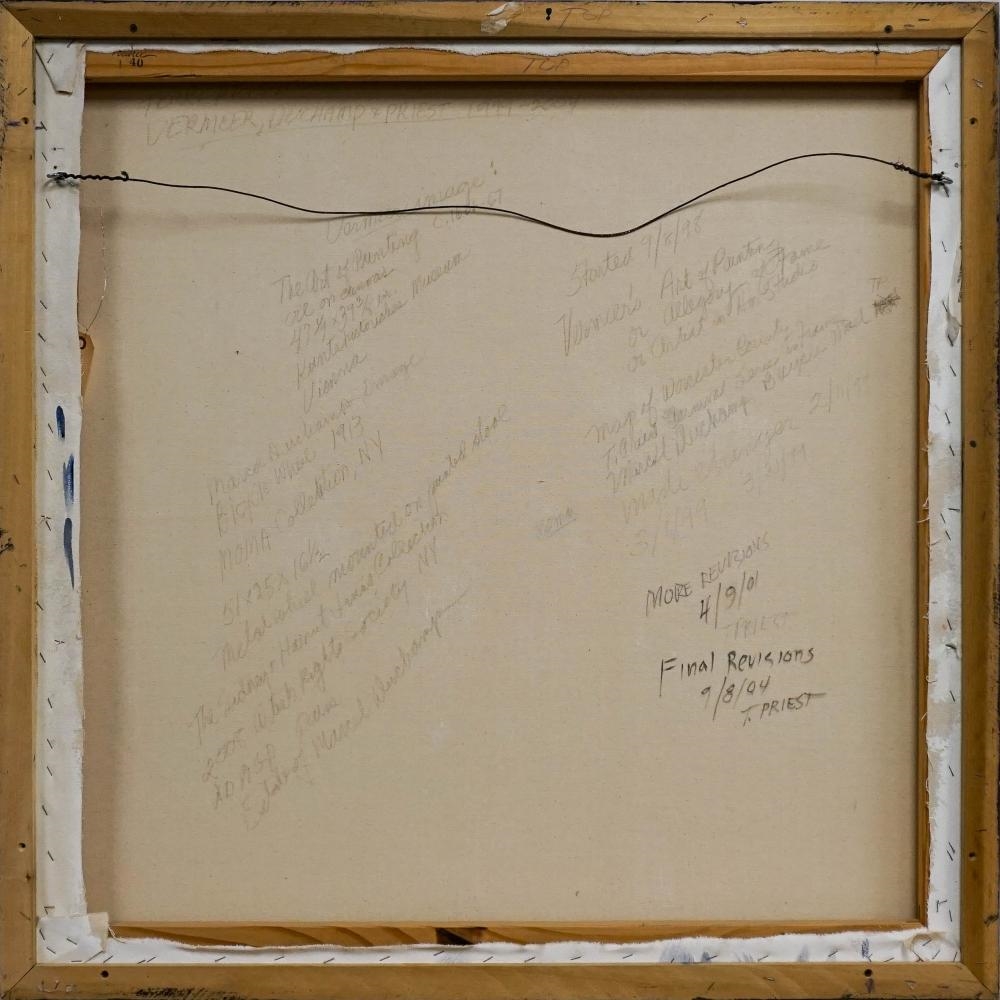 TOP
40
TOP
VERMEER, DUCHAMP & PRIEST 1997-2004
Vermeer image:
The Art of Painting c.1666-67
oil on canvas
47 1/4 x 39 3/8 in.
Kunsthistorisches Museum
Vienna
Marcel Duchamp Image
Bicycle Wheel 1913
MOMA Collection, NY
51 x 25 x 16 1/2
Metal wheel mounted on painted stool
The Sidney & Harriet Janis Collection
2008 Artists Rights Society NY
ADAGP Paris
Estate of Marcel Duchamp
Started 9/8/98
Vermeer's Art of Painting
or Allegory of Fame
or Artist in His Studio
Map of Worcester County
T. Priest
Marcel Duchamp Bicycle Wheel
2/11/99
Made Stronger
3/6/99
MORE REVISIONS
4/9/01
T PRIEST
Final Revisions
9/8/04
T. PRIEST